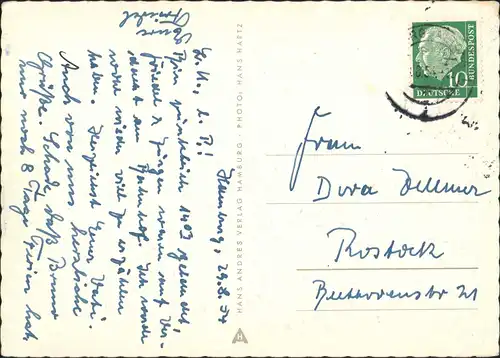 Hamburg, 29.8.54
L. M., L. P.!
Bin pünktlich 1403 gelandet.
Friedel & Jürgen waren mit
schon am Bahnhof. Ich werde
wieder viel zu erzählen
haben. Herzlichst Euer Vati.
Auch von uns herzliche
Grüße. Schade, daß Bruno
nur noch 8 Tage Ferien hat.
Eure
Friedel
HANS ANDRES VERLAG HAMBURG · PHOTO: HANS HARTZ
DEUTSCHE
BUNDESPOST
10
Frau
Dora Dellmer
Rostock
Beethovenstr 21